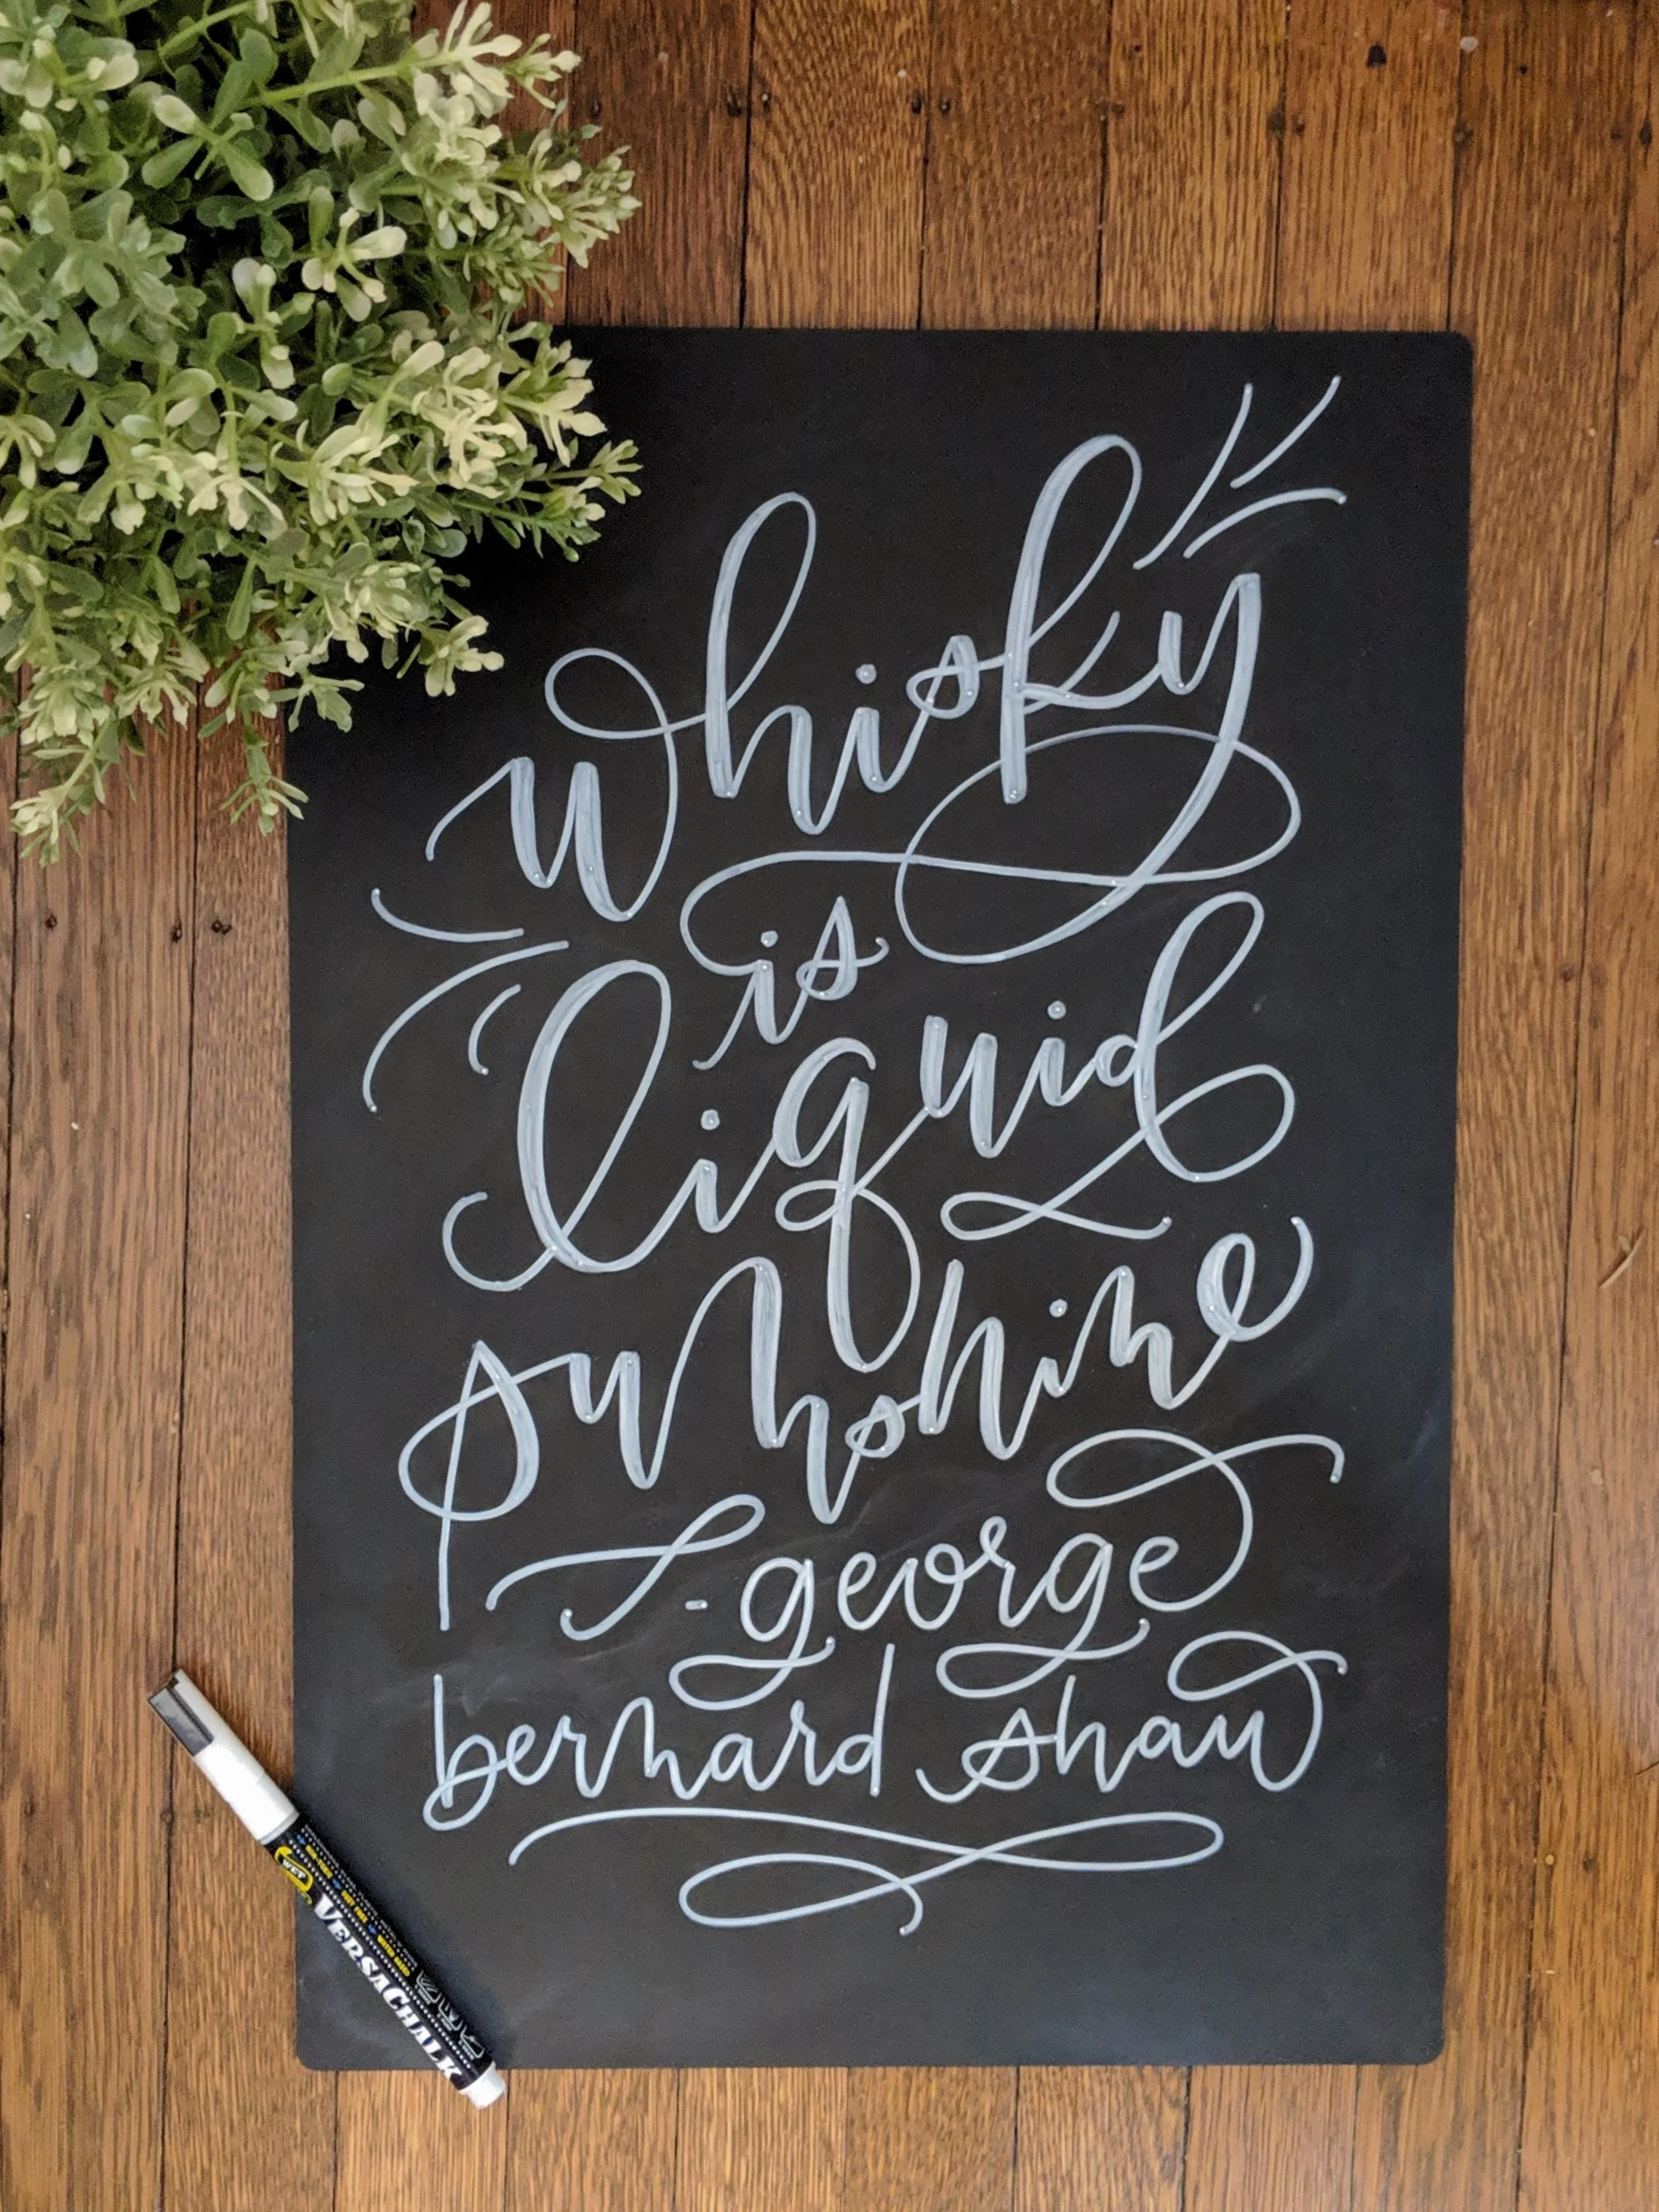 whisky
is
liquid
sunshine
- george
bernard shaw
VERSACHALK
WET